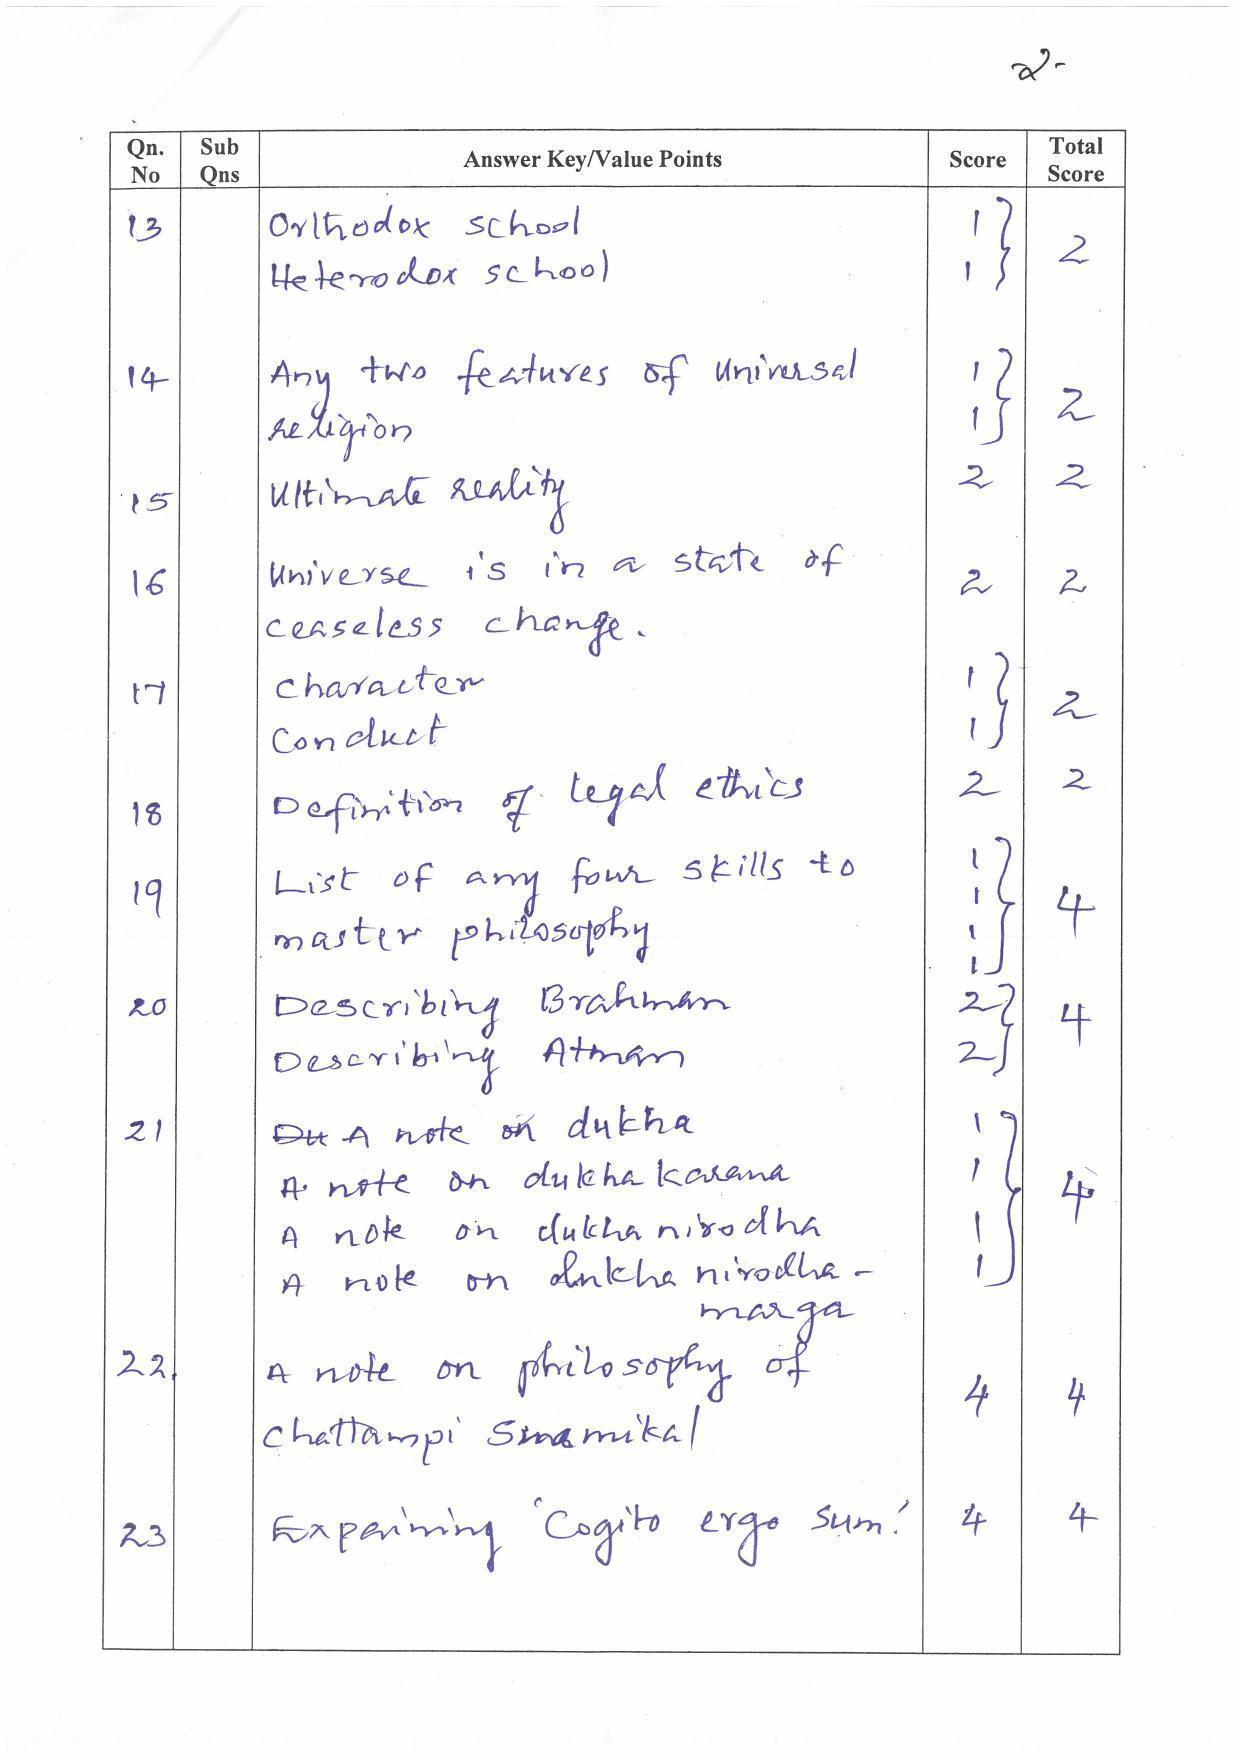 2-
Qn. No Sub Qns Answer Key/Value Points Score Total Score
13 Orthodox school 1
Heterodox school 1 2
14 Any two features of universal 1
religion 1 2
15 Ultimate reality 2 2
16 Universe is in a state of 2 2
ceaseless change.
17 Character 1
Conduct 1 2
18 Definition of legal ethics 2 2
19 List of any four skills to 1 1
master philosophy 1 1 4
20 Describing Brahman 2
Describing Atman 2 4
21 Du A note on dukha 1
A note on dukha karana 1 4
A note on dukha nirodha 1
A note on dukha nirodha- 1
marga
22. A note on philosophy of 4 4
Chattampi Swamikal
23 Expaining 'Cogito ergo sum.' 4 4